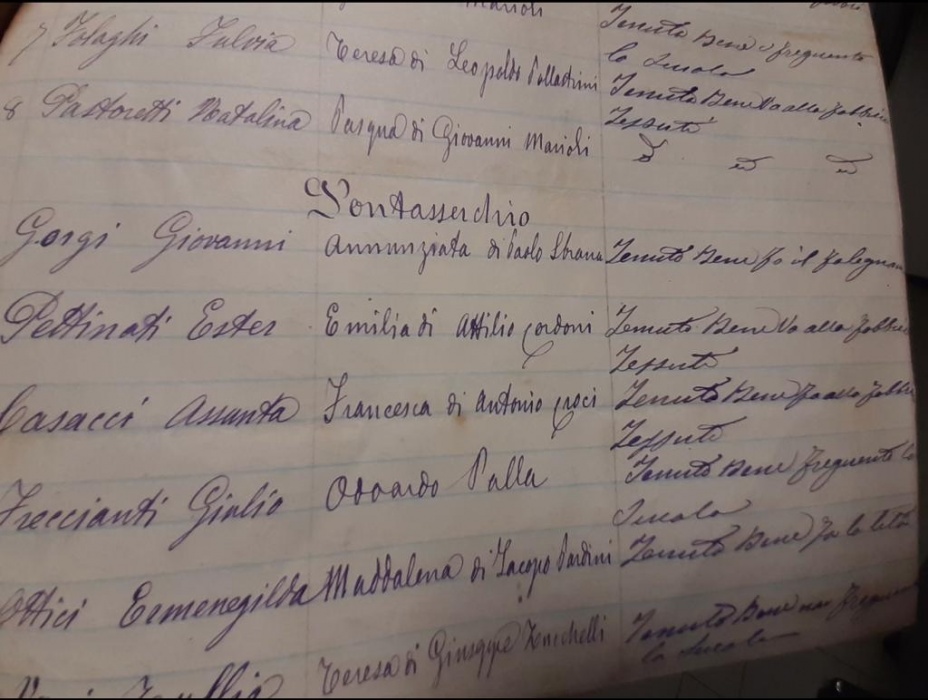 Marioli
7 Folaghi Fulvia Teresa di Leopoldo Pallastrini Tenuta Bene e frequenta
la Scuola
8 Pastoretti Natalina Pasqua di Giovanni Marioli Tenuta Bene Va alla fabbrica
Tessuti
Pontasserchio
Gorgi Giovanni Annunziata di Paolo Sbrana Tenuto Bene fa il falegname
Pettinati Ester Emilia di Attilio Cordoni Tenuta Bene Va alla fabbrica
Tessuti
Casacci Assunta Francesca di Antonio Croci Tenuta Bene Va alla fabbrica
Tessuti
Freccianti Giulio Odoardo Palla Tenuto Bene frequenta la
Scuola
Ottici Ermenegilda Maddalena di Jacopo Pardini Tenuta Bene fa la
Teresa di Giuseppe Zucchelli Tenuta Bene non
la Scuola